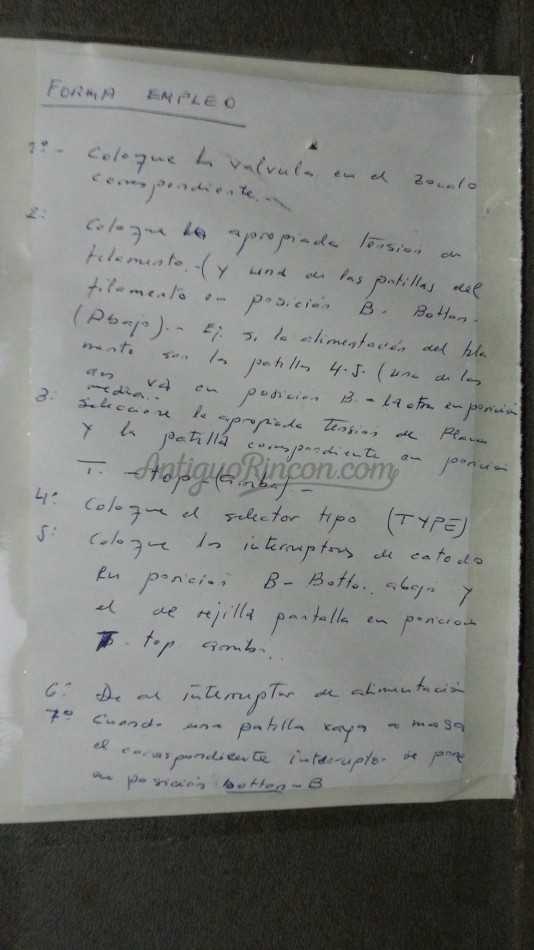 FORMA EMPLEO
1º- Coloque la valvula en el zocalo
correspondiente.-
2º Coloque la apropiada tension de
filamento.-(y una de las patillas del
filamento en posición B- Botton-
(Abajo).- Ej. si la alimentación del fila
mento son las patillas 4-5. (una de las
dos va en posicion B.- la otra en posición
media..
3º seleccione la apropiada tension de Placa
y la patilla correspondiente en posicion
T. -top-(arriba)-
AntiguoRincon.com
4º Coloque el selector tipo (TYPE)
5º Coloque los interruptores de catodo
en posicion B- Botto.. abajo y
el de rejilla pantalla en posicion
T- top arrib...
6º De al interruptor de alimentación
7º Cuando una patilla vaya a masa
el correspondiente interruptor se pone
en posición botton-B